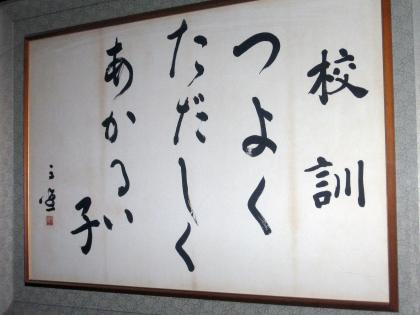 校訓
つよく
ただしく
あかるい子